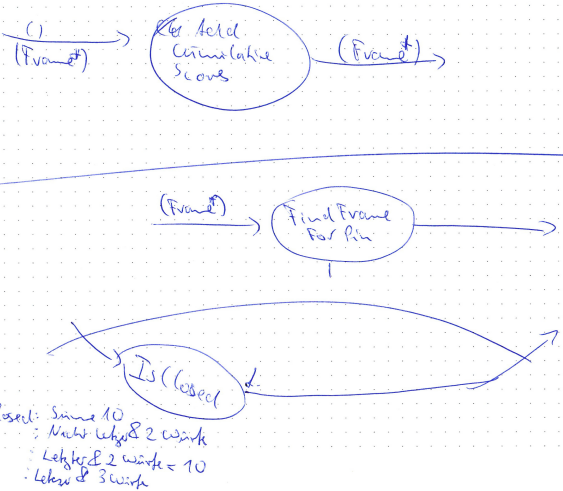 ()
(Frame*)
Add
Cumulative
Scores
(Frame*)
(Frame*)
Find Frame
For Pin
Is Closed
losed: Summe 10
: Nicht Letzter & 2 Würfe
: Letzter & 2 Würfe = 10
: Letzter & 3 Würfe